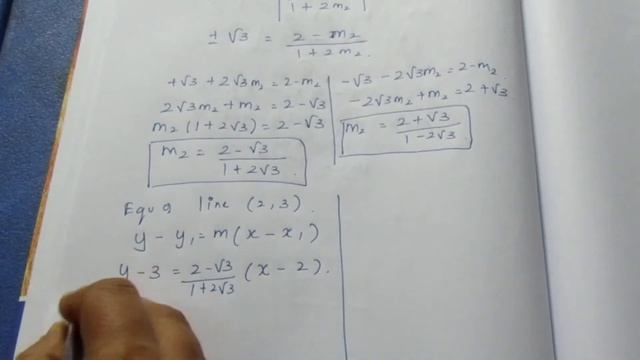 1 + 2m₂
± √3 = (2 - m₂)/(1 + 2m₂).
+√3 + 2√3m₂ = 2 - m₂
2√3m₂ + m₂ = 2 - √3
m₂ (1 + 2√3) = 2 - √3
m₂ = (2 - √3)/(1 + 2√3)
-√3 - 2√3m₂ = 2 - m₂.
-2√3m₂ + m₂ = 2 + √3
m₂ = (2 + √3)/(1 - 2√3)
line (2, 3).
y - y₁ = m(x - x₁)
y - 3 = (2 - √3)/(1 + 2√3) (x - 2).